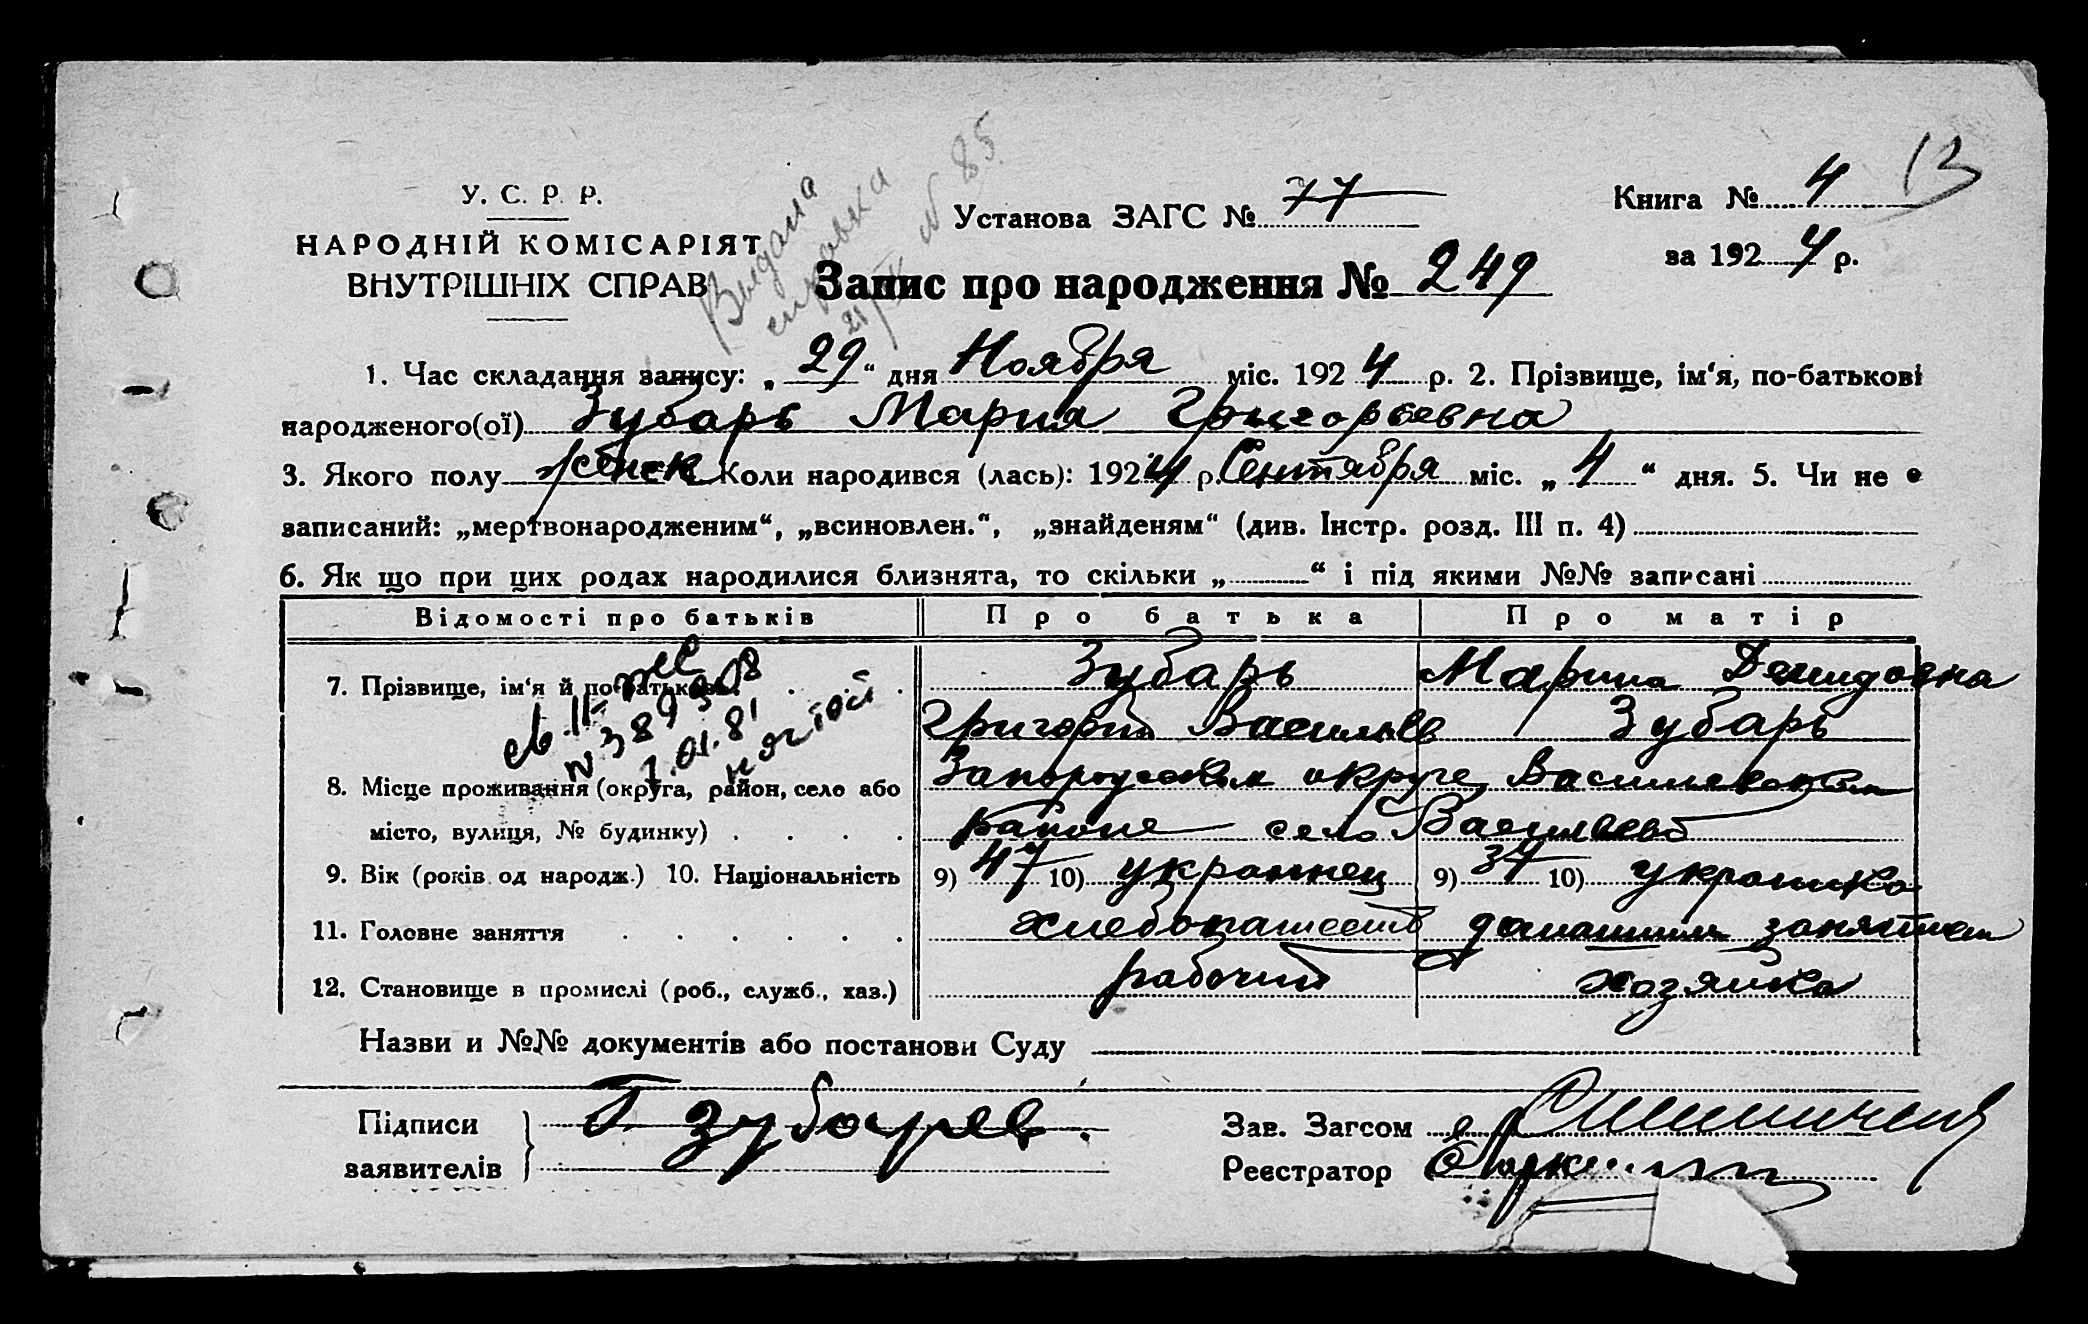 13
У. С. Р. Р.
НАРОДНІЙ КОМІСАРІЯТ
ВНУТРІШНІХ СПРАВ
Выдана
справка
№ 85
Установа ЗАГС № 77
Книга № 4
за 1924 р.
Запис про народження № 249
1. Час складання запису: „29“ дня Ноября міс. 1924 р. 2. Прізвище, ім‘я, по-батькові
народженого(ої) Зубарь Мария Григорьевна
3. Якого полу женск Коли народився (лась): 1924 р. Сентября міс. „4“ дня. 5. Чи не є
записаний: „мертвонародженим“, „всиновлен.“, „знайденям“ (див. Інстр. розд. III п. 4)
6. Як що при цих родах народилися близнята, то скільки „ “ і під якими №№ записані
Відомості про батьків Про батька Про матір
7. Прізвище, ім‘я й по-батькові Зубарь Марина Демидовна
Григорий Васильев Зубарь
св. II-
N 389308
7.01.81
8. Місце проживання (округа, район, село або Запорожском округе, Васильевском
місто, вулиця, № будинку) районе село Васильевб
9. Вік (років од народж.) 10. Національність 9) 47 10) украинец 9) 37 10) украинка
11. Головне заняття хлебопашеств домашним занятием
12. Становище в промислі (роб., служб., хаз.) рабочий хозяйка
Назви и №№ документів або постанови Суду
Підписи
заявителів
Г Зубарев.
Зав. Загсом
Реєстратор